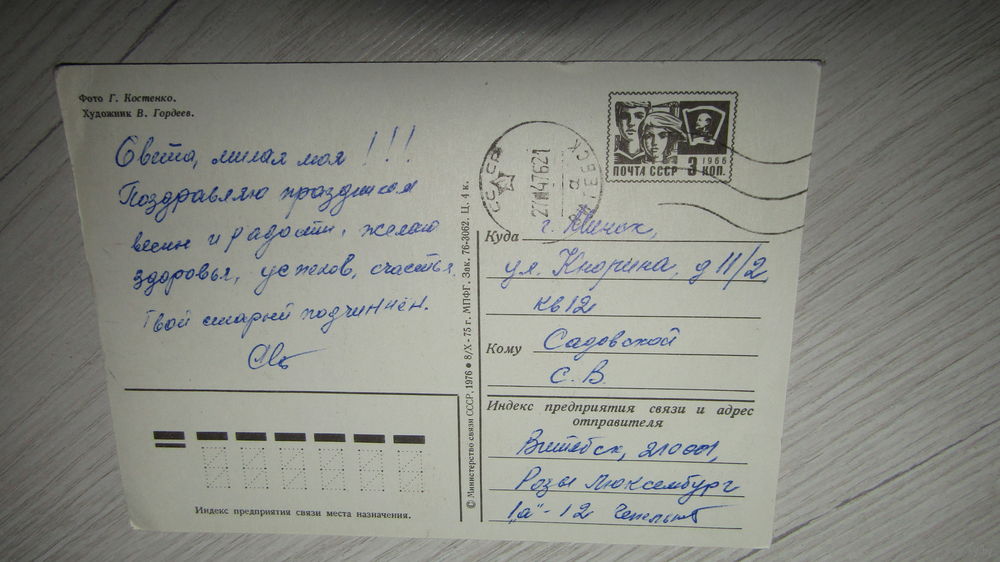 Фото Г. Костенко.
Художник В. Гордеев.
Света, милая моя!!!
Поздравляю праздником
весны и радости, желаю
здоровья, успехов, счастья.
Твой старый подчинён.
© Министерство связи СССР, 1976 ● 8/X-75 г. МПФГ. Зак. 76-3062. Ц. 4 к.
1966
ПОЧТА СССР 3 КОП.
СССР
ВИТЕБСК
Куда г. Минск,
ул. Кнорина, д 11/2
кв 12
Кому Садовской
С. В.
Индекс предприятия связи и адрес
отправителя
Витебск, 210001,
Розы Люксембург
1"а" - 12
Индекс предприятия связи места назначения.